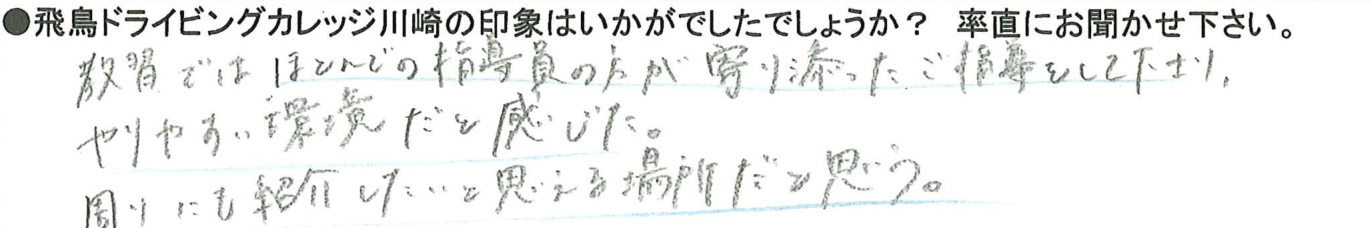 ●飛鳥ドライビングカレッジ川崎の印象はいかがでしたでしょうか？　率直にお聞かせ下さい。
教習ではほとんどの指導員の方が寄り添ったご指導をして下さり、
やりやすい環境だと感じた。
周りにも紹介したいと思える場所だと思う。